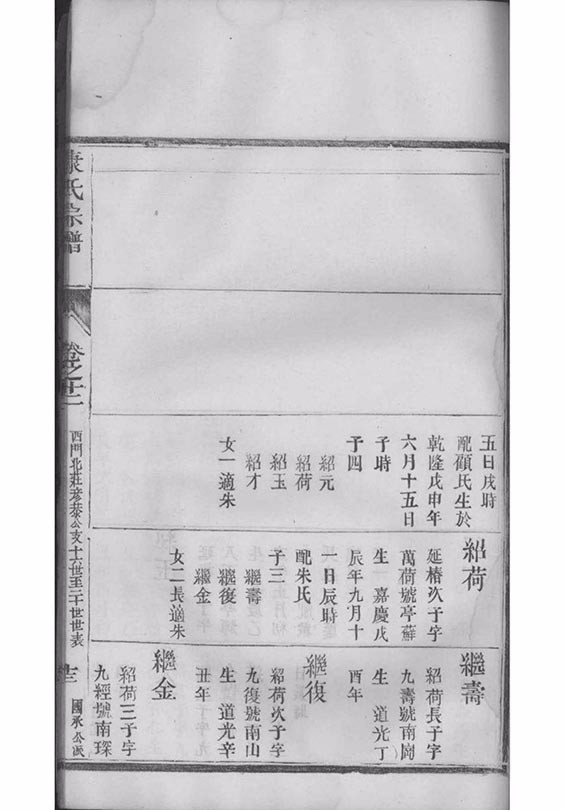 五日戌時
配顧氏生於
乾隆戊申年
六月十五日
子時
子四
紹元
紹荷
紹玉
紹才
女一適朱
紹荷
延椿次子字
萬荷號亭蘇
生 嘉慶戊
辰年九月十
一日辰時
配朱氏
子三
繼壽
繼復
繼金
女二長適朱
繼壽
紹荷長子字
九壽號南岡
生 道光丁
酉年
繼復
紹荷次子字
九復號南山
生 道光辛
丑年
繼金
紹荷三子字
九經號南琛
康氏宗譜
卷之十二
西門北莊彥恭公支十六世至二十世世表
國承公派